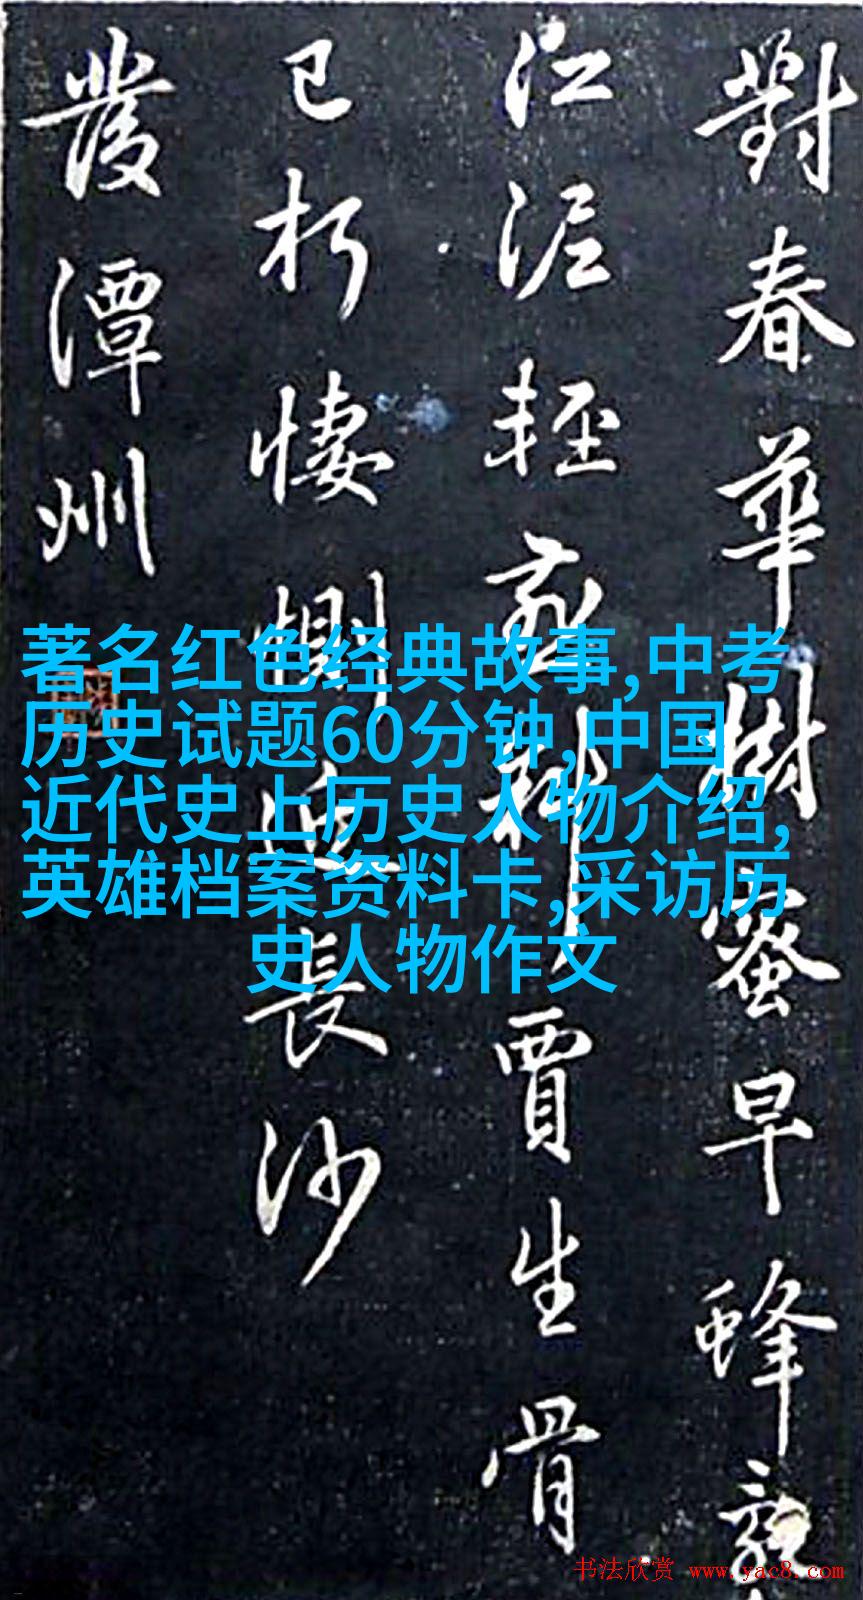 對春華樹蜜早蜂
江泥輕燕斜賈生骨
已朽悽惻近長沙
發潭州
著名红色经典故事,中考
历史试题60分钟,中国
近代史上历史人物介绍,
英雄档案资料卡,采访历
史人物作文
书法欣赏 www.yac8.com